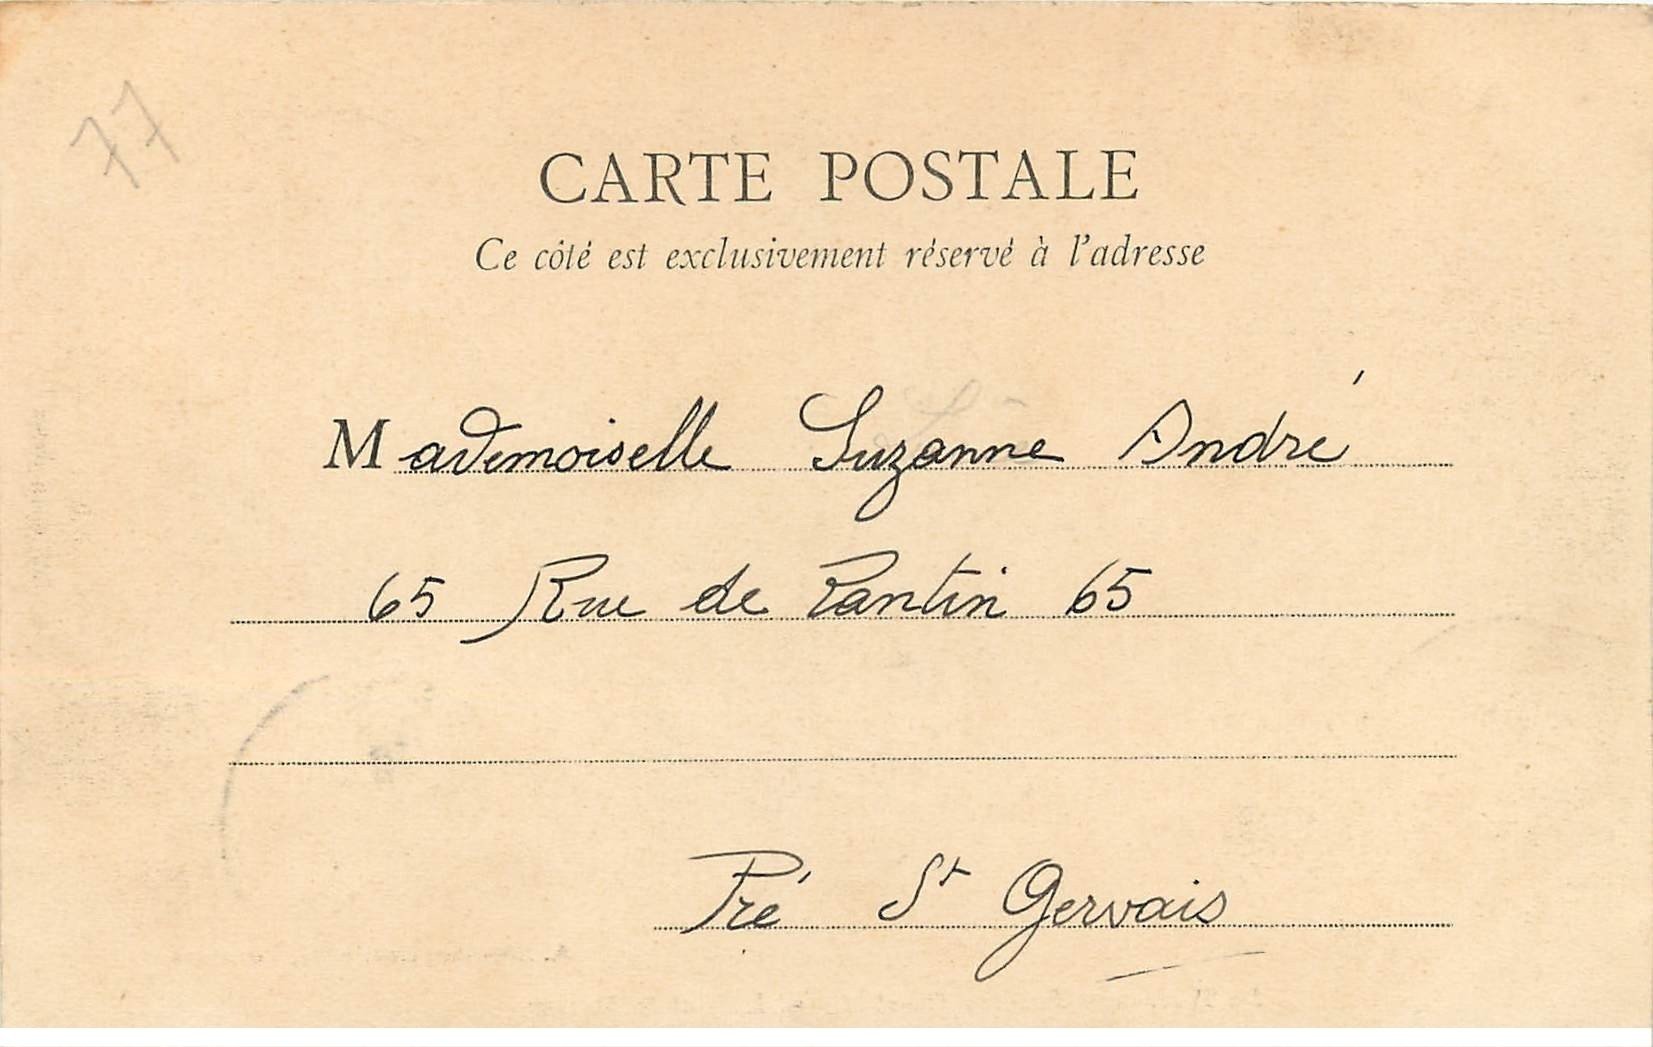 77
CARTE POSTALE
Ce côté est exclusivement réservé à l'adresse
Mademoiselle Suzanne André
65 Rue de Pantin 65
Pré St Gervais